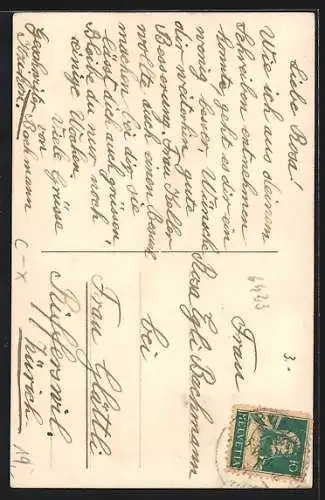 Liebe Rosa!
Wie ich aus deinem
Schreiben entnehmen
konnte geht es dir ein
wenig besser. Wünsche
dir weiterhin gute
Besserung. Frau Keller
wollte auch einen Besuch
machen bei dir sie
lässt dich auch grüssen.
Bleibe du nur noch
einige Wochen.
Viele Grüsse
von
Bachmann
Frau
Rosa Egli Bachmann
bei
Frau Glättli
Rifferswil
Zürich
HELVETIA
10
3.-
C-X
19.